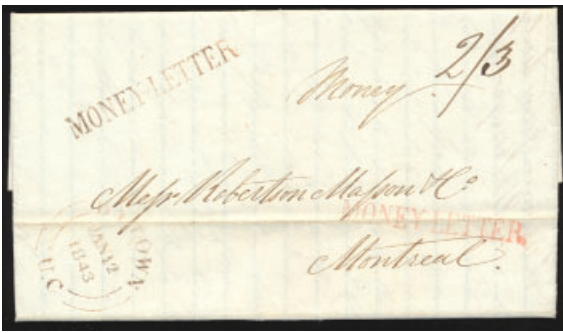 MONEY-LETTER
Money 2/3
Messrs Robertson Masson & Co
MONEY-LETTER.
Montreal.
JAN 12
1843
U.C